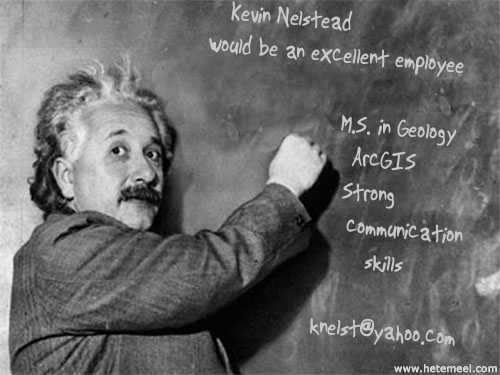 Kevin Nelstead
would be an excellent employee
M.S. in Geology
ArcGIS
Strong
communication
skills
knelst@yahoo.com
www.hetemeel.com